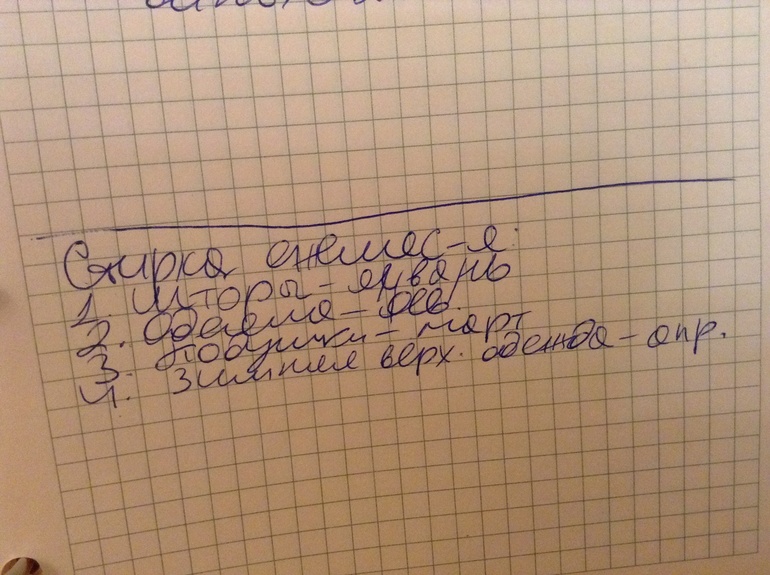 Стирка ежемес-я:
1. Шторы - январь
2. Одеяла - фев.
3. Подушки - март
4. Зимняя верх. одежда - апр.